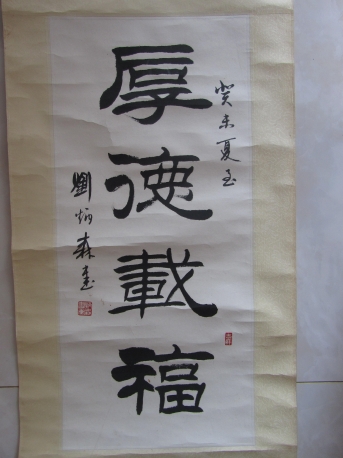 厚德載福
癸未夏至
劉炳森書